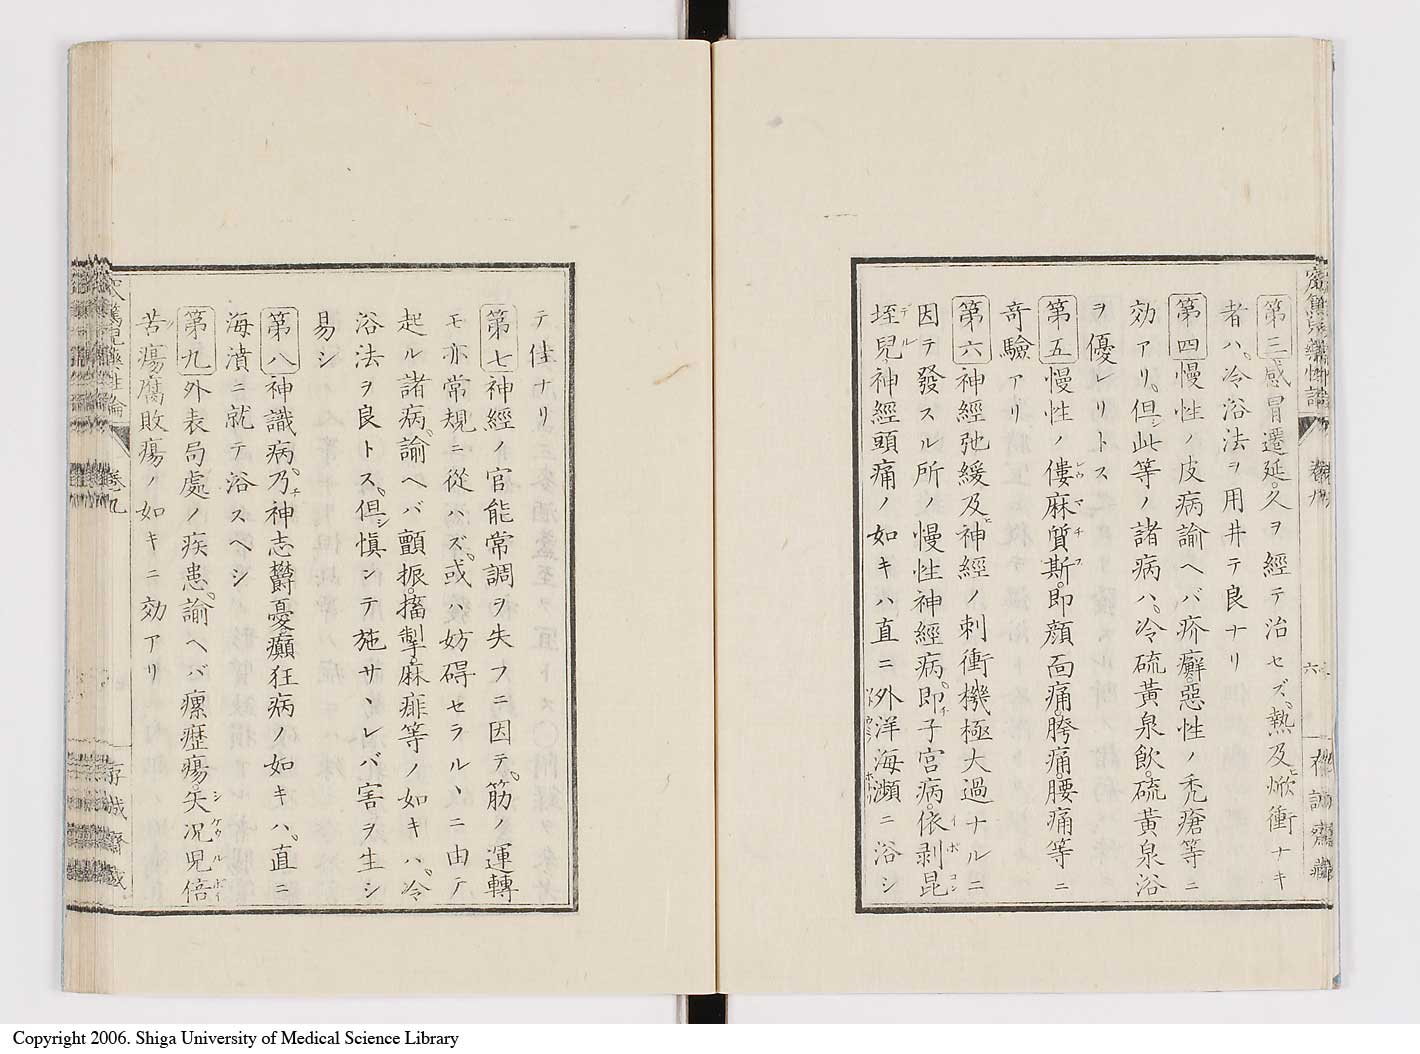 第三感冒遷延。久ヲ經テ治セズ、熱及ヒ焮衝ナキ
者ハ。冷浴法ヲ用井テ良ナリ
第四慢性ノ皮病諭ヘバ疥癬。惡性ノ禿瘡等ニ
効アリ。但シ此等ノ諸病ハ。冷硫黃泉飲。硫黃泉浴
ヲ優レリトス
第五慢性ノ僂麻質斯。即顔面痛。胯痛。腰痛等ニ
奇驗アリ
第六神經弛緩及ヒ神經ノ刺衝機極大過ナルニ
因テ發スル所ノ慢性神經病。即チ子宮病。依剥昆
垤兒。神經頭痛ノ如キハ直ニ外洋海瀕ニ浴シ
テ佳ナリ
第七神經ノ官能常調ヲ失フニ因テ。筋ノ運轉
モ亦常規ニ從ハズ。或ハ妨碍セラルヽニ由テ
起ル諸病。諭ヘバ顫振。搐掣。麻痱等ノ如キハ。冷
浴法ヲ良トス。但シ愼ンテ施サヽレバ害ヲ生シ
易シ
第八神識病。乃チ神志欝憂。癲狂病ノ如キハ。直ニ
海濆ニ就テ浴スヘシ
第九外表局處ノ疾患。諭ヘバ瘰癧瘍。矢況兒倍
苦瘍腐敗瘍ノ如キニ効アリ
卷九
Copyright 2006. Shiga University of Medical Science Library